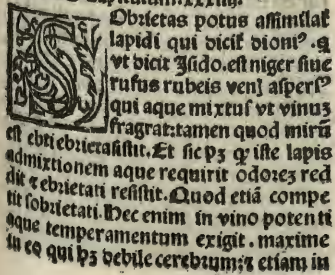 Sobrietas potus assimilať
lapidi qui dicit᷑ dioniꝰ. qͥ
vt dicit Isido. est niger siue
rufus rubeis venꝫ asperſꝰ
qui aque mixtus vt vinuꝫ
fragrat: tamen quod mirū
est ebti ebrietasistit. Et sic pꝫ ꝙ iste lapis
admixtionem aque requirit odoreꝫ red
dit ⁊ ebrietati resistit. Quod etiā compe
tit sobrietati. Hec enim in vino potenti
aque temperamentum exigit. maxime
in eo qui hꝫ debile cerebrum; ⁊ etiam in